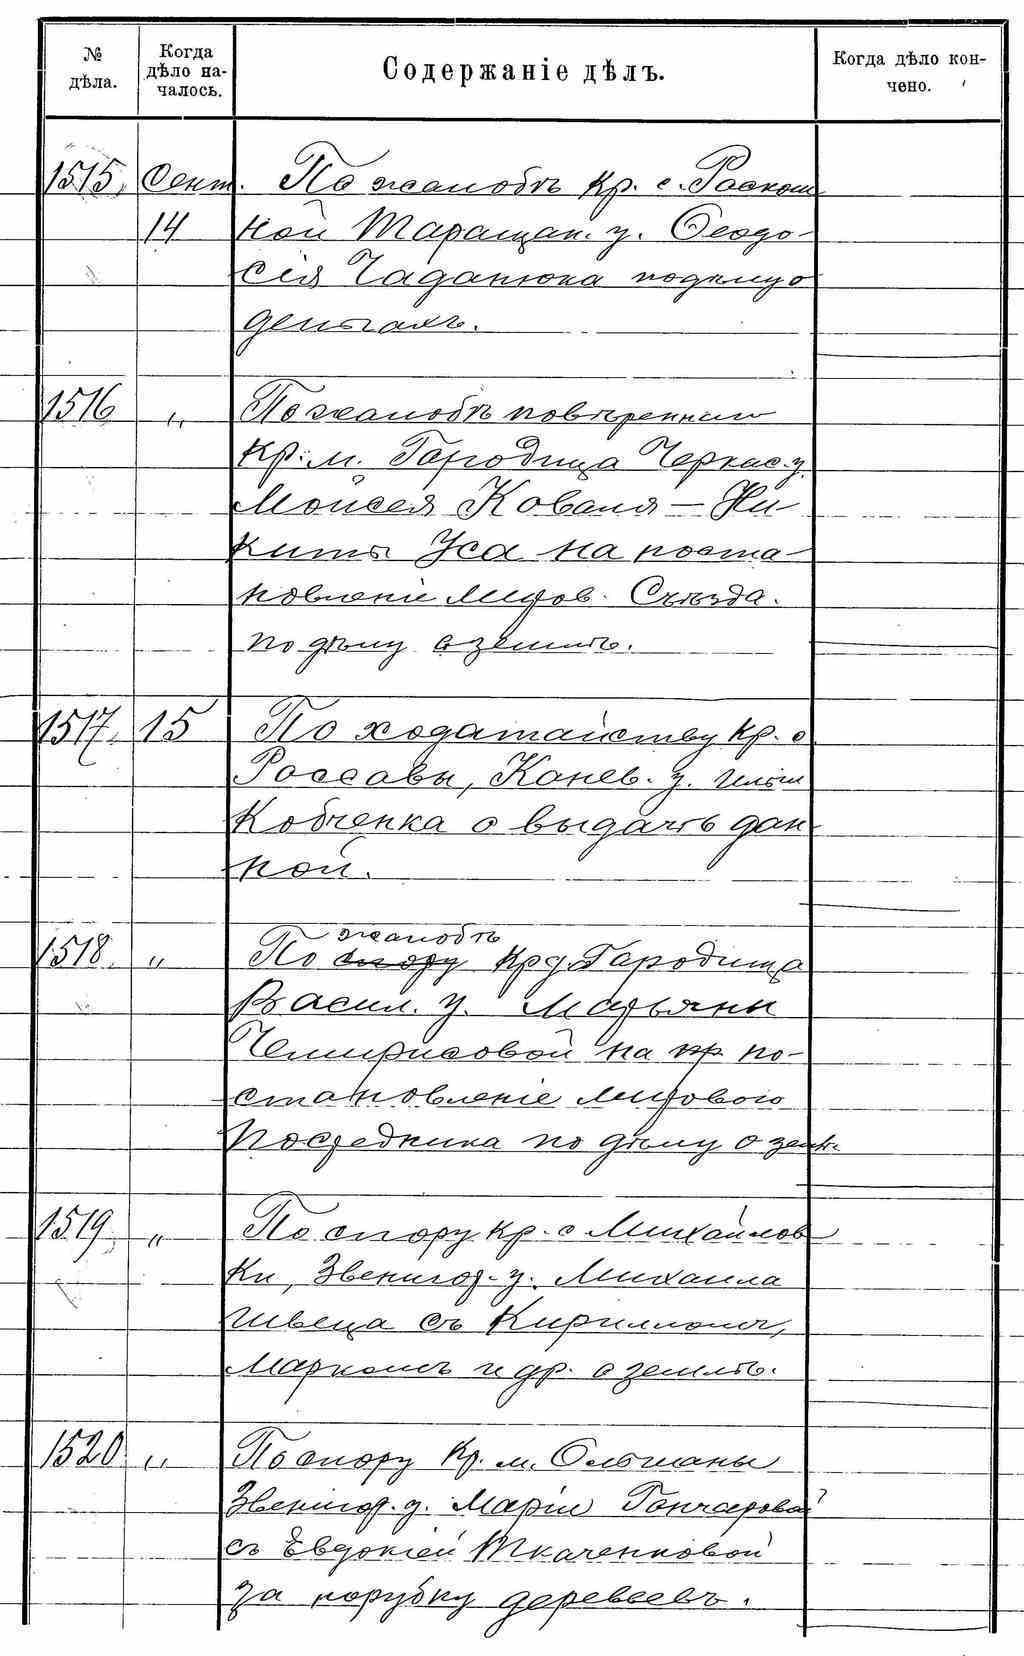 № дѣла.
Когда дѣло на-чалось.
Содержаніе дѣлъ.
Когда дѣло кон-чено.
1515. Сент. По жалобѣ Кр. с. Роскош
14 ной Таращан. у. Ѳеодо-
сія Чаданюка по дѣлу о
деньгахъ.
1516 „ По жалобѣ повѣренныи
Кр. м. Городища Черкас. у.
Моисея Коваля — Ни-
киты Уса на поста-
новленіе Миров. Съѣзда.
по дѣлу о землѣ.
1517. 15 По ходатайству Кр. с
Россавы, Канев. у. Ильи
Кобченка о выдачѣ дан-
ной.
1518. „ По спору жалобѣ Кр д Городища
Васил. у. Марьяны
Чемирисовой на пр по-
становленіе Мирового
Посредника по дѣлу о землѣ
1519. „ По спору Кр. с Михайлов
ки, Звенигор. у. Михаила
Швеца съ Кирилломъ,
Маркомъ и др. о землѣ.
1520 „ По спору Кр. м. Ольшаны
Звенигор. у. Маріи Гончаровой
съ Евдокіей Ткаченковой
за порубку деревьевъ.